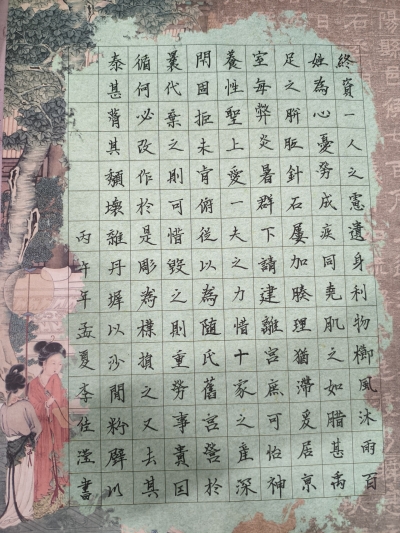 終資一人之慮遺身利物櫛風沐雨百
姓為心憂勞成疾同堯肌之如腊甚禹
足之胼胝針石屢加腠理猶滯爰居京
室每弊炎暑群下請建離宮庶可怡神
養性聖上愛一夫之力惜十家之產深
閉固拒未肯俯從以為隨氏舊宮營於
曩代棄之則可惜毀之則重勞事貴因
循何必改作於是彫為樸損之又去其
泰甚葺其頹壞雜丹墀以沙閒粉壁以
丙午年孟夏李佳瀅書